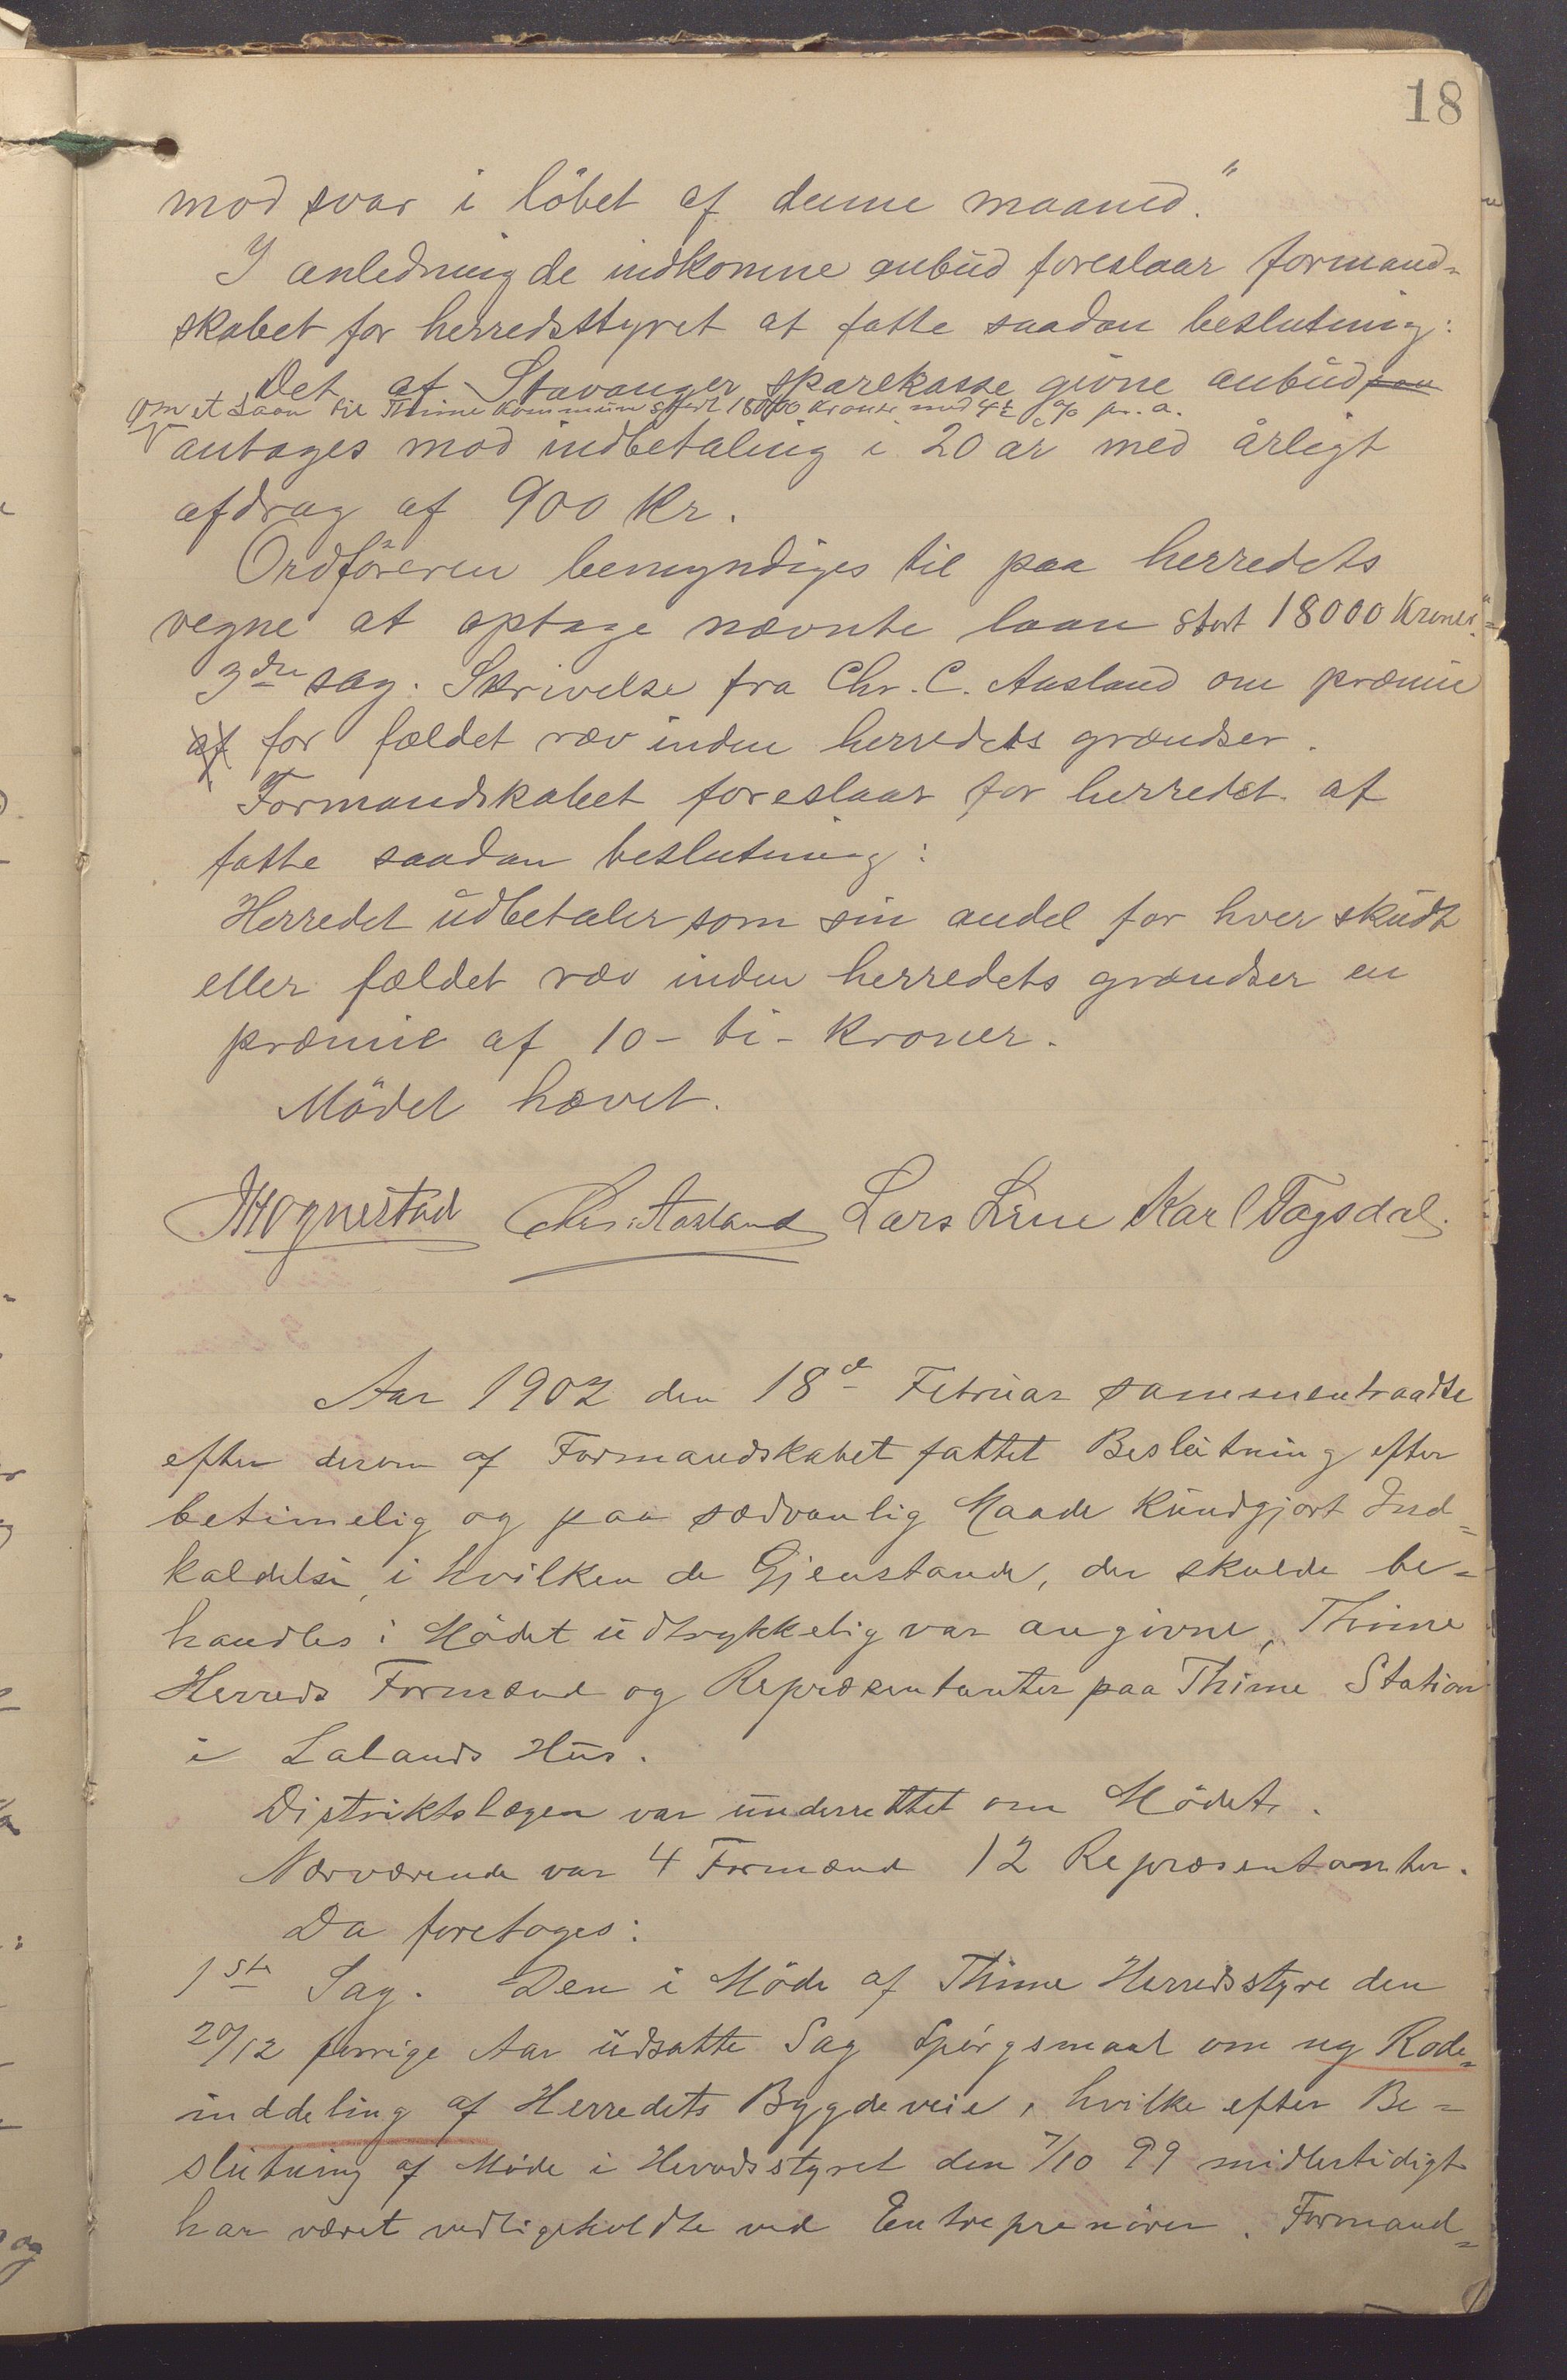 18
mod svar i löbet af denne maaned."
I anledning de indkomne anbud foreslaar formand-
skabet for herredsstyret at fatte saadan beslutning:
Det af Stavanger sparekasse givne anbud paa
Om et Laan til Thime Kommune stort 18000 Kroner mod 4½ % pr. a.
antages mod indbetaling i 20 år med årligt
afdrag af 900 Kr.
Ordföreren bemyndiges til paa herredets
vegne at optage nævnte laan stort 18000 Kroner."
3die sag. Skrivelse fra Chr. C. Aasland om præmie
af for fældet ræv inden herredets grændser.
Formandskabet foreslaar for herredst. af
fatte saadan beslutning:
Herredet udbetaler som sin andel for hver skudt
eller fældet ræv inden herredets grændser en
præmie af 10 - ti - kroner.
Mödet hævet.
Hognestad Chr. Aasland Lars Line Karl Tagsdal.
Aar 1902 den 18de Februar sammentraadte
efter derom af Formandskabet fattet Beslutning efter
betimelig og paa sædvanlig Maade kundgjort Ind-
kaldelse, i hvilken de Gjenstande, der skulde be-
handles i Mödet udtrykkelig var angivne, Thime
Herreds Formænd og Repræsentanter paa Thime Station
i Lalands Hus.
Distriktslægen var underrettet om Mödet.
Nærværende var 4 Formænd 12 Repræsentanter.
Da foretoges:
1ste Sag. Den i Möde af Thime Herredsstyre den
20/12 forrige Aar udsatte Sag Spörgsmaal om ny Rode-
inddeling af Herredets Bygdeveie, hvilke efter Be-
slutning af Möde i Herredsstyret den 7/10 99 midlertidigt
har været vedligeholdte ved Entreprenörer. Formand-